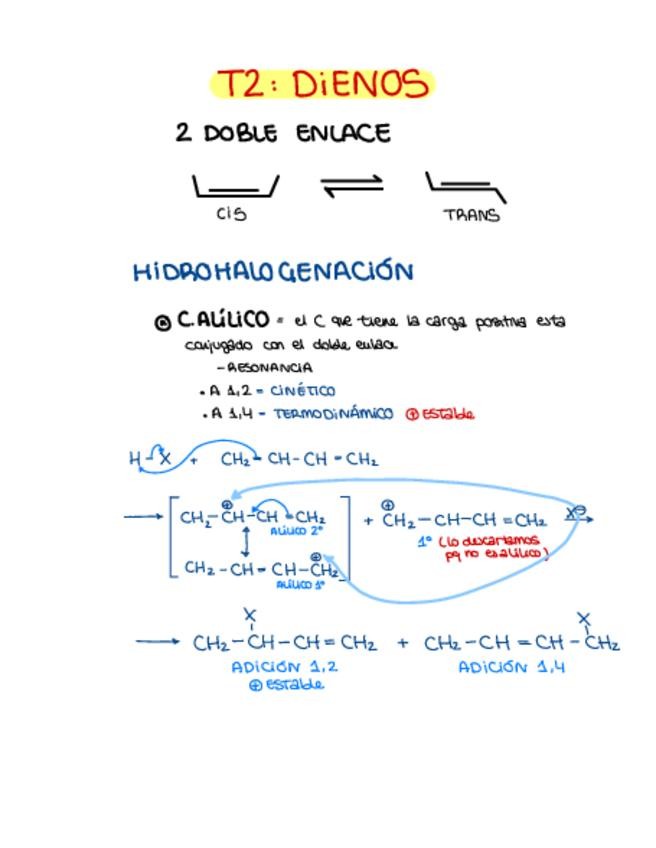 T2: DiENOS
2 DOBLE ENLACE
CiS
TRANS
HiDROHALOGENACIÓN
C.ALÍLICO = el C que tiene la carga positiva esta
conjugado con el doble enlace
-RESONANCIA
. A 1,2 - CINÉTICO
. A 1,4 - TERMODINÁMICO ⊕ EStable
H-X + CH₂=CH-CH=CH₂
CH₂-CH-CH=CH₂ + CH₂-CH-CH=CH₂ X⊖
⊕ ⊕
ALíLICO 2º
1º (lo descartamos
pq no es alílico)
CH₂-CH=CH-CH₂
⊕
ALíLICO 1º
X X
CH₂-CH-CH=CH₂ + CH₂-CH=CH-CH₂
ADICIÓN 1,2 ADICIÓN 1,4
⊕ EStable